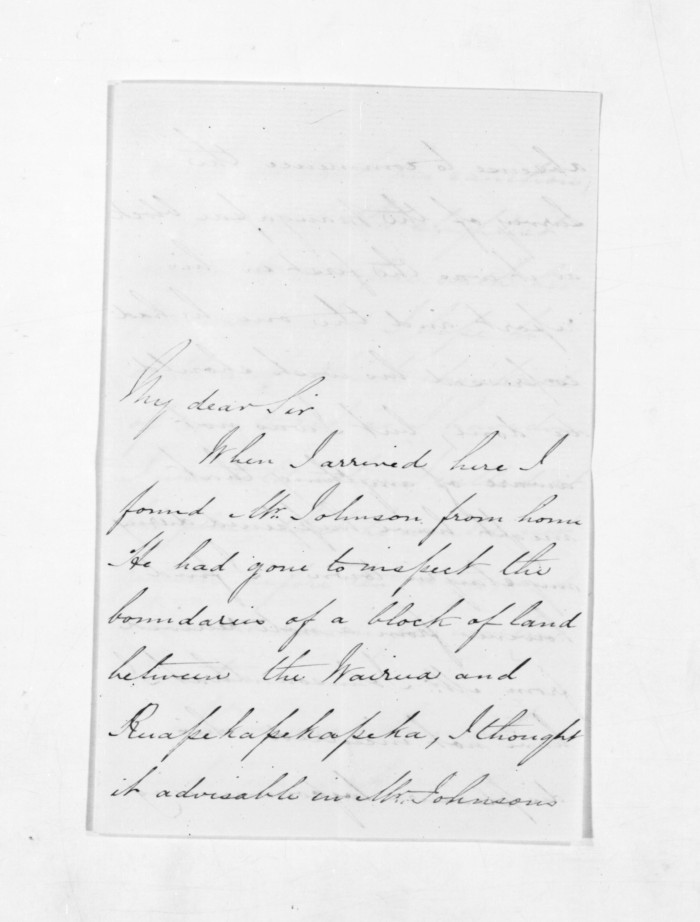 My dear Sir
When I arrived here I
found Mr. Johnson from home
He had gone to inspect the
boundaries of a block of land
between the Wairua and
Ruapekapekapeka, I thought
it advisable in Mr. Johnsons